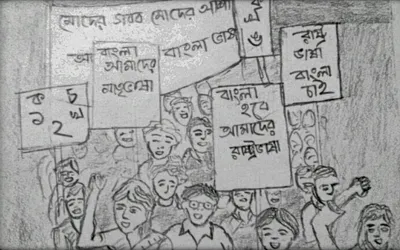 মোদের গরব মোদের আশা
আ বাংলা ভাষা
খ
ঙ
রাষ্ট্র
ভাষা
বাংলা
চাই
বাংলা
আমাদের
মাতৃভাষা
বাংলা
হবে
আমাদের
রাষ্ট্রভাষা
ক চ
১ ২ খ